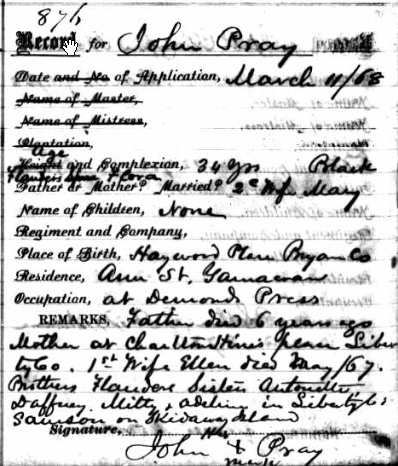 876
Record for John Pray
Date and No of Application, March 11/68
Name of Master,
Name of Mistress,
Plantation,
Age
Height and Complexion, 34 yrs Black
Flanders Flora
Father or Mother? Married? 2d Wife Mary
Name of Children, None
Regiment and Company,
Place of Birth, Haywood Plan Bryan Co
Residence, Ann St. Yamacraw
Occupation, at Demonds Press
REMARKS, Father died 6 years ago
Mother at Charlton Hines place Liber
ty Co. 1st Wife Ellen died May/67.
Brothers Flanders Sister Antonette
Daffney Milty, adeline in Liberty Co
Samson on Skidaway Island
Signature, His
John X Pray
mark